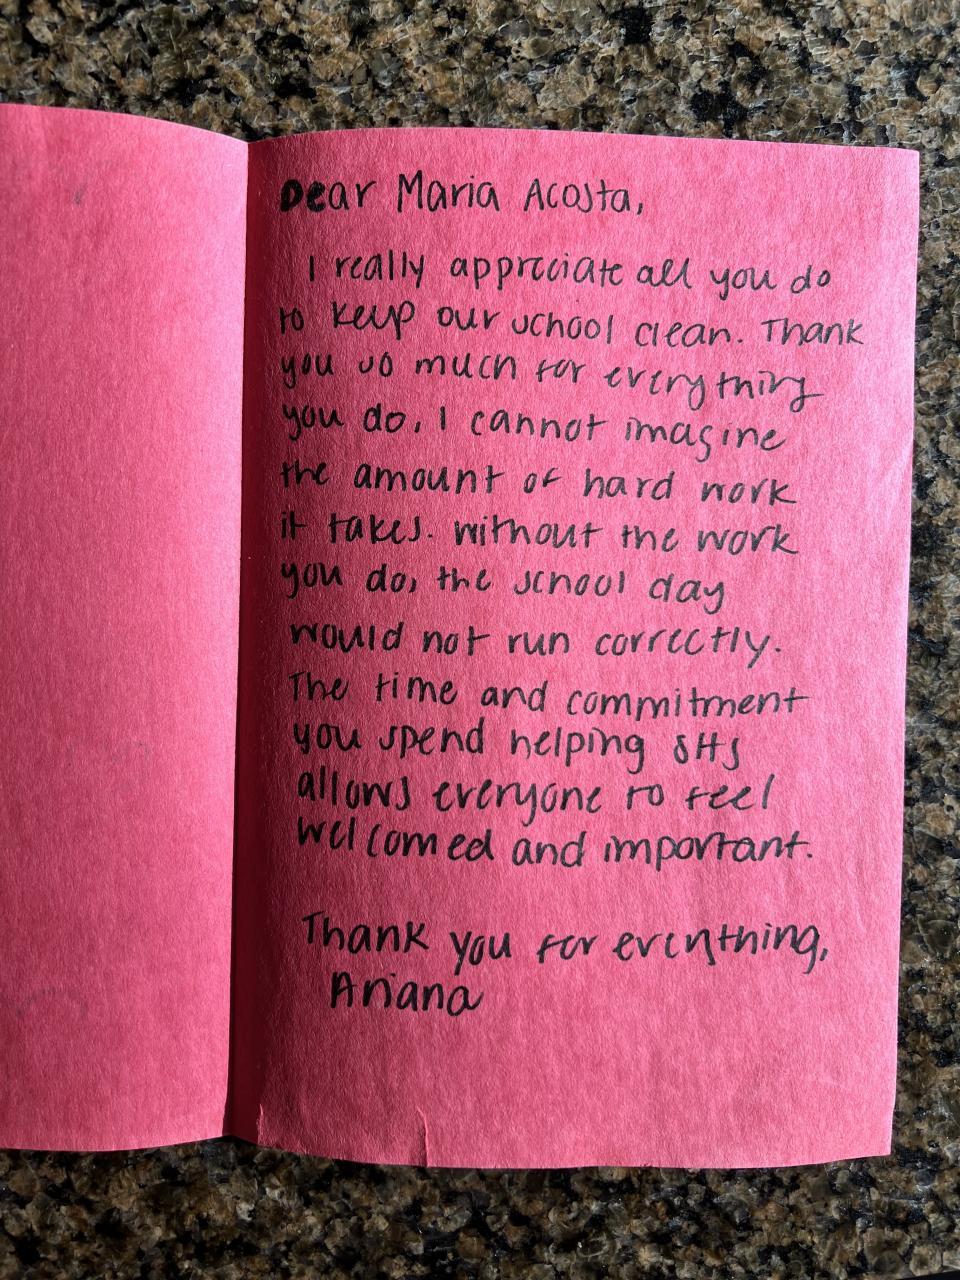 Dear Maria Acosta,
I really appreciate all you do
to keep our school clean. Thank
you so much for everything
you do, I cannot imagine
the amount of hard work
it takes. without the work
you do, the school day
would not run correctly.
The time and commitment
you spend helping SHS
allows everyone to feel
welcomed and important.
Thank you for everything,
Ariana